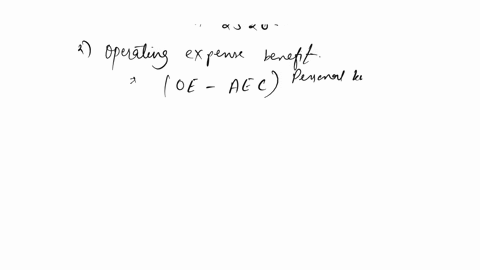 2) Operating expense benefit.
(OE - AEC) Personal